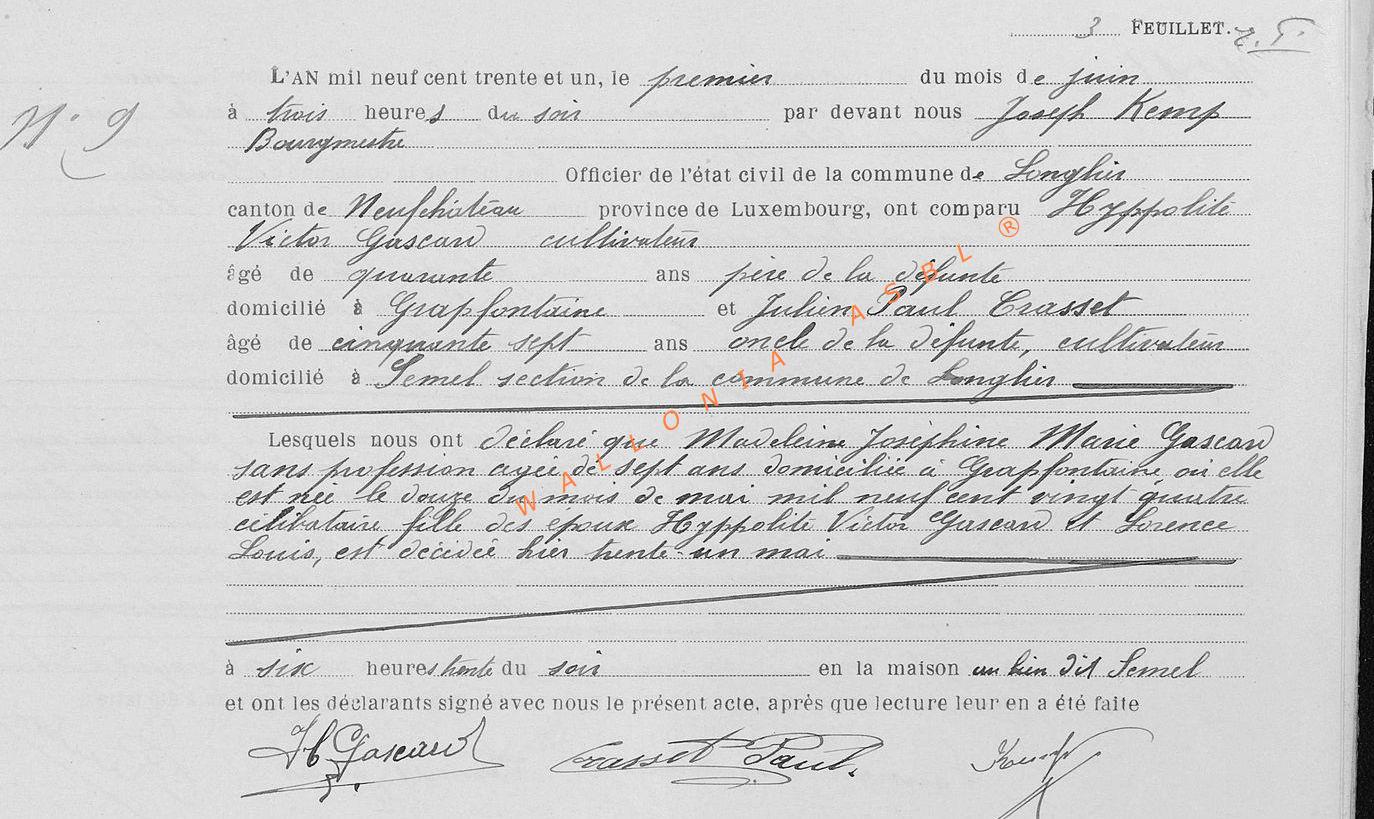 3 FEUILLET.
N° 9
L'AN mil neuf cent trente et un, le premier du mois de juin
à trois heures du soir par devant nous Joseph Kemp
Bourgmestre
Officier de l'état civil de la commune de Longlier
canton de Neufchâteau province de Luxembourg, ont comparu Hyppolite
Victor Gascard cultivateur
âgé de quarante ans père de la défunte
domicilié à Grapfontaine et Julien Paul Crasset
âgé de cinquante sept ans oncle de la défunte, cultivateur
domicilié à Semel section de la commune de Longlier
Lesquels nous ont déclaré que Madeleine Joséphine Marie Gascard
sans profession agée de sept ans domiciliée à Grapfontaine où elle
est née le douze du mois de mai mil neuf cent vingt quatre
célibataire fille des époux Hyppolite Victor Gascard et Lorence
Louis, est décédée hier trente-un mai
à six heures trente du soir en la maison au lieu dit Semel
et ont les déclarants signé avec nous le présent acte, après que lecture leur en a été faite
H Gascard
Crasset Paul.
Kemp
WALLONIA ASBL ®